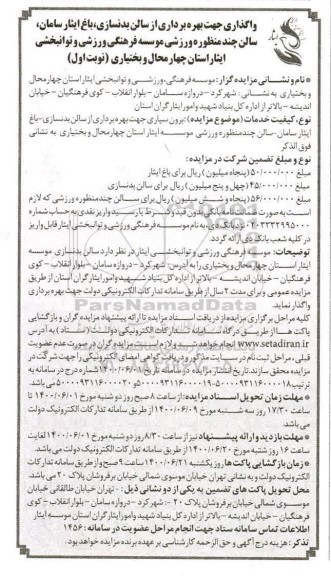 واگذاری جهت بهره برداری از سالن بدنسازی، باغ ایثار سامان،
سالن چند منظوره ورزشی موسسه فرهنگی ورزشی و توانبخشی
ایثار استان چهار محال و بختیاری (نوبت اول)
• نام و نشانی مزایده گزار: موسسه فرهنگی، ورزشی و توانبخشی ایثار استان چهارمحال
و بختیاری به نشانی: شهرکرد - دروازه سامان - بلوار انقلاب - کوی فرهنگیان - خیابان
اندیشه - بالاتر از اداره کل بنیاد شهید و امور ایثارگران استان
نوع، کیفیت خدمات (موضوع مزایده): برون سپاری جهت بهره برداری از سالن بدنسازی-باغ
ایثار سامان-سالن چند منظوره ورزشی موسسه ایثار استان چهار محال و بختیاری به نشانی
فوق الذکر
نوع و مبلغ تضمین شرکت در مزایده:
مبلغ ۵۰/۰۰۰/۰۰۰ (پنجاه میلیون) ریال برای باغ ایثار
مبلغ ۴۵/۰۰۰/۰۰۰ (چهل و پنج میلیون) ریال برای سالن بدنسازی
مبلغ ۵۶/۰۰۰/۰۰۰ (پنجاه و شش میلیون) ریال برای سالن چند منظوره ورزشی که لازم
است به صورت ضمانتنامه بانکی بدون قید و شرط یا رسید واریز نقدی به حساب شماره
نزد بانک دی، به نام موسسه فرهنگی ورزشی و توانبخشی ایثار قابل واریز
در کلیه شعب بانک دی ارائه گردد.
توضیحات: موسسه فرهنگی ورزشی و توانبخشی ایثار در نظر دارد سالن بدنسازی موسسه
ایثار استان چهارمحال و بختیاری را به آدرس: شهر کرد - دروازه سامان - بلوار انقلاب - کوی
فرهنگیان - خیابان اندیشه - بالاتر از اداره کل بنیاد شهید و امور ایثارگران استان از طریق
مزایده عمومی و برای مدت ۲ سال از طریق سامانه تدارکات الکترونیکی دولت جهت بهره برداری
واگذار نماید.
کلیه مراحل برگزاری مزایده از دریافت اسناد مزایده تا ارائه پیشنهاد مزایده گران و بازگشایی
پاکت ها از طریق درگاه سامانه تدارکات الکترونیکی دولت (ستاد) به آدرس
www.setadiran.ir انجام خواهد شد و لازم است مزایده گران در صورت عدم عضویت
قبلی، مراحل ثبت نام در سایت مذکور و دریافت گواهی امضای الکترونیکی را جهت شرکت در
مزایده محقق سازند. تاریخ انتشار مزایده در سامانه تاریخ ۱۴۰۰/۰۶/۰۱ شماره درج در سامانه به
ترتیب می باشد.
• مهلت زمان تحویل اسناد مزایده: از ساعت ۸ صبح روز دوشنبه مورخ ۱۴۰۰/۰۶/۰۱ تا
ساعت ۱۷/۳۰ روز سه شنبه مورخ ۱۴۰۰/۰۶/۰۹ از طریق سامانه تدارکات الکترونیک دولت
می باشد.
• مهلت بازدید و ارائه پیشنهاد نیز از ساعت ۸/۳۰ روز دوشنبه مورخ ۱۴۰۰/۰۶/۰۱ لغایت
ساعت ۱۶ روز شنبه مورخ ۱۴۰۰/۰۶/۲۰ از طریق سامانه تدارکات الکترونیک دولت می باشد.
• زمان بازگشایی پاکت ها روز یکشنبه ۱۴۰۰/۰۶/۲۱ ساعت ۹ صبح و از طریق سامانه تدارکات
الکترونیک دولت و به نشانی تهران خیابان موسوی شمالی خیابان برفروشان پلاک ۲۰ می باشد.
محل تحویل پاکت های تضمین به یکی از دو نشانی ذیل: - تهران - خیابان طالقانی خیابان
موسوی شمالی خیابان برفروشان پلاک ۲۰ - شهرکرد - دروازه سامان - بلوار انقلاب - کوی
فرهنگیان - خیابان اندیشه - بالاتر از اداره کل بنیاد شهید و امور ایثارگران استان موسسه ایثار
اطلاعات تماس سامانه ستاد جهت انجام مراحل عضویت در سامانه: ۱۴۵۶
تذکر: هزینه درج آگهی و حق الزحمه کارشناسی بر عهده برنده مزایده خواهد بود.